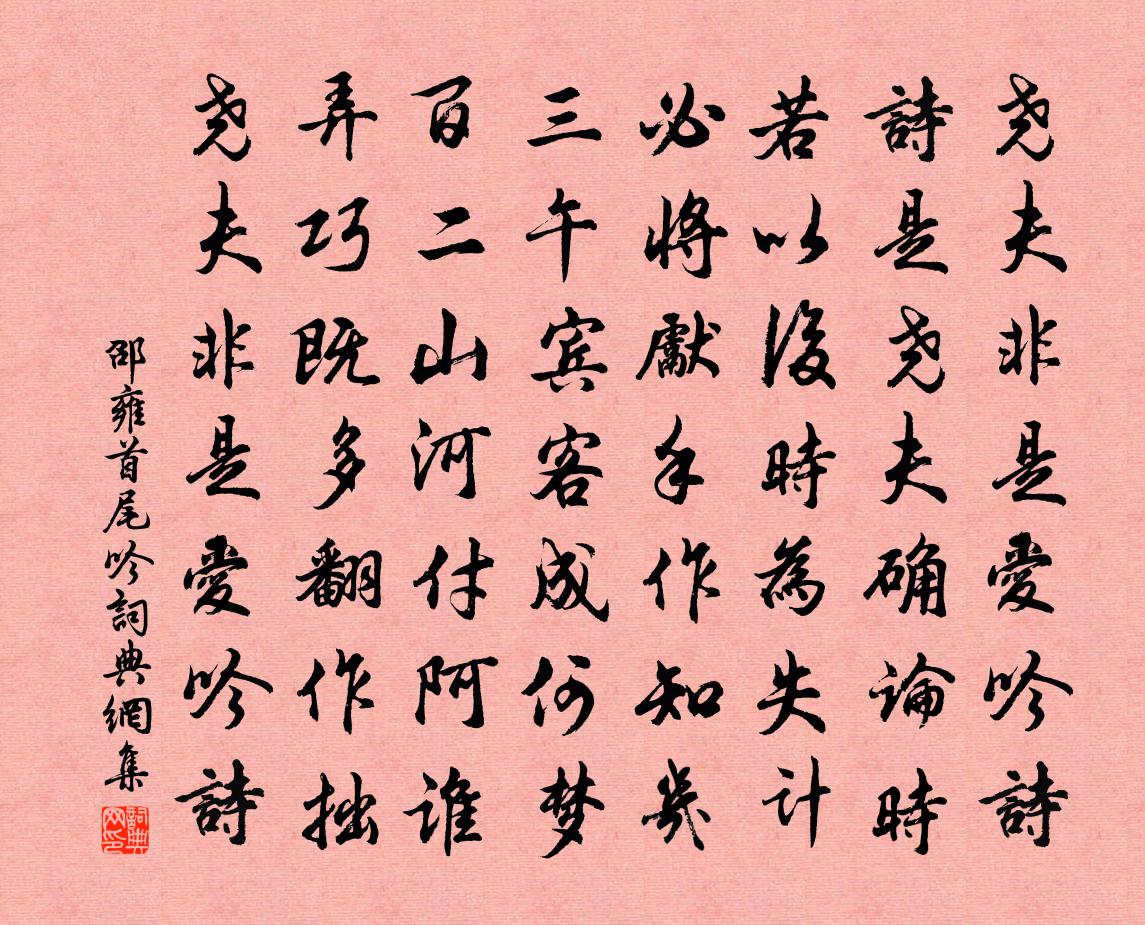 尧夫非是愛吟詩
詩是尧夫确論時
若以後時為失計
必將獻手作知幾
三午宾客成何梦
百二山河付阿誰
弄巧既多翻作拙
尧夫非是愛吟詩
邵雍首尾吟詞典網集
詞典网印